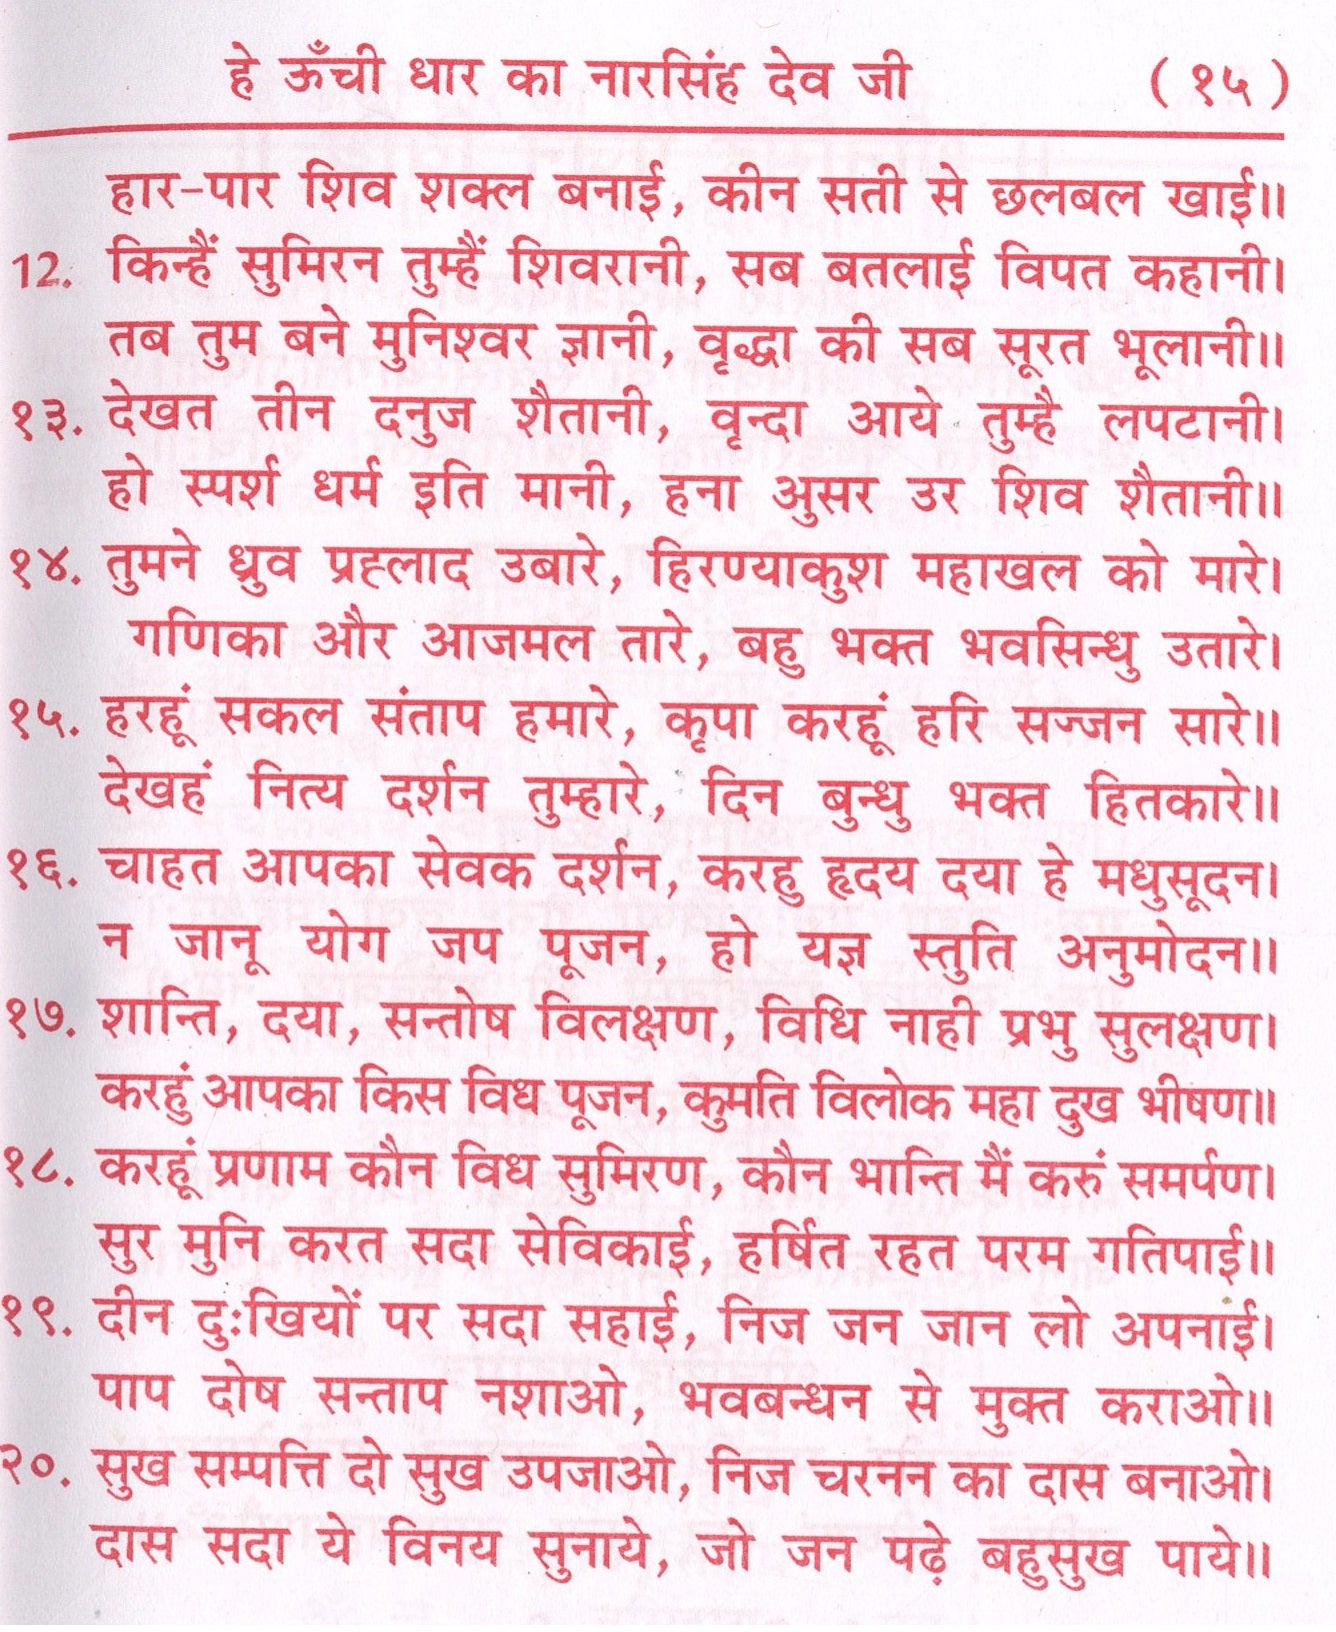 हे ऊँची धार का नारसिंह देव जी ( १५ )
हार-पार शिव शक्ल बनाई, कीन सती से छलबल खाई॥
12. किन्हैं सुमिरन तुम्हैं शिवरानी, सब बतलाई विपत कहानी।
तब तुम बने मुनिश्वर ज्ञानी, वृद्धा की सब सूरत भूलानी॥
१३. देखत तीन दनुज शैतानी, वृन्दा आये तुम्है लपटानी।
हो स्पर्श धर्म इति मानी, हना अुसर उर शिव शैतानी॥
१४. तुमने ध्रुव प्रह्लाद उबारे, हिरण्याकुश महाखल को मारे।
गणिका और आजमल तारे, बहु भक्त भवसिन्धु उतारे।
१५. हरहूं सकल संताप हमारे, कृपा करहूं हरि सज्जन सारे॥
देखहं नित्य दर्शन तुम्हारे, दिन बुन्धु भक्त हितकारे॥
१६. चाहत आपका सेवक दर्शन, करहु हृदय दया हे मधुसूदन।
न जानू योग जप पूजन, हो यज्ञ स्तुति अनुमोदन॥
१७. शान्ति, दया, सन्तोष विलक्षण, विधि नाही प्रभु सुलक्षण।
करहुं आपका किस विध पूजन, कुमति विलोक महा दुख भीषण॥
१८. करहूं प्रणाम कौन विध सुमिरण, कौन भान्ति मैं करुं समर्पण।
सुर मुनि करत सदा सेविकाई, हर्षित रहत परम गतिपाई॥
१९. दीन दुःखियों पर सदा सहाई, निज जन जान लो अपनाई।
पाप दोष सन्ताप नशाओ, भवबन्धन से मुक्त कराओ॥
२०. सुख सम्पत्ति दो सुख उपजाओ, निज चरनन का दास बनाओ।
दास सदा ये विनय सुनाये, जो जन पढ़े बहुसुख पाये॥